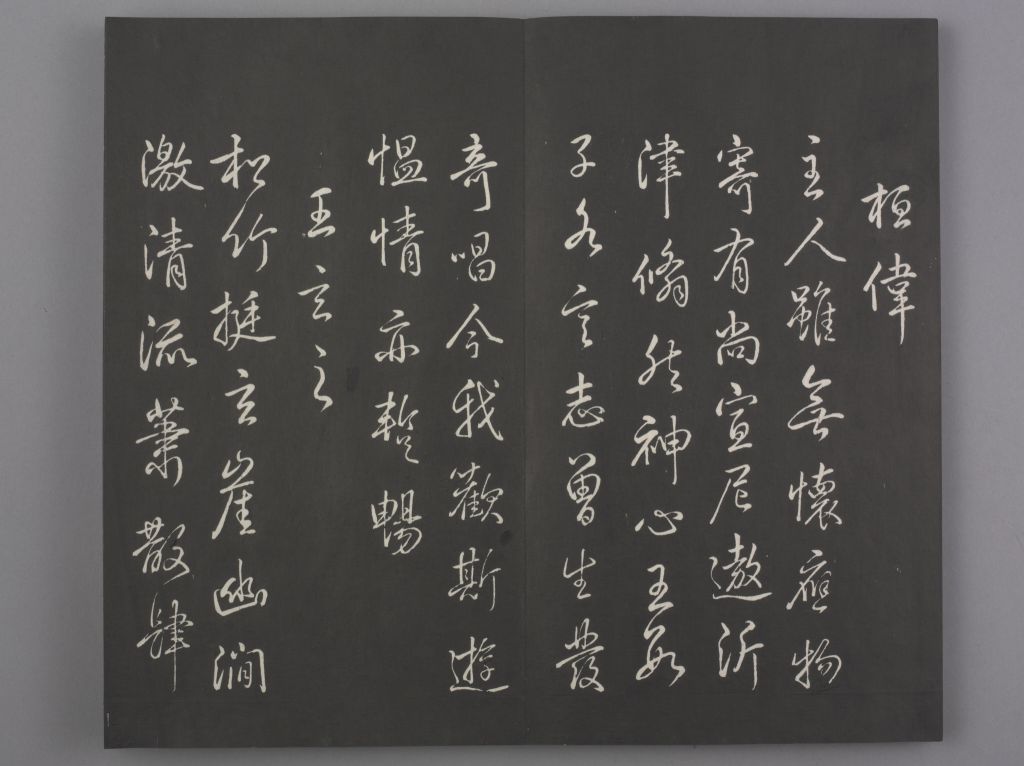 桓偉
主人雖無懷應物
寄有尚宣尼遨沂
津翛然神心王數
子各言志曾生發
奇唱今我歡斯遊
慍情亦暫暢
王玄之
松竹挺玄崖幽澗
激清流蕭散肆